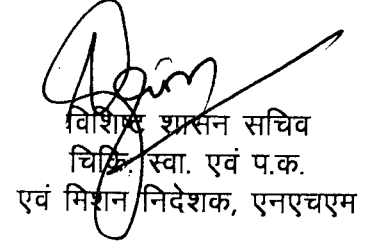 विशिष्ट शासन सचिव
चिकि. स्वा. एवं प.क.
एवं मिशन निदेशक, एनएचएम